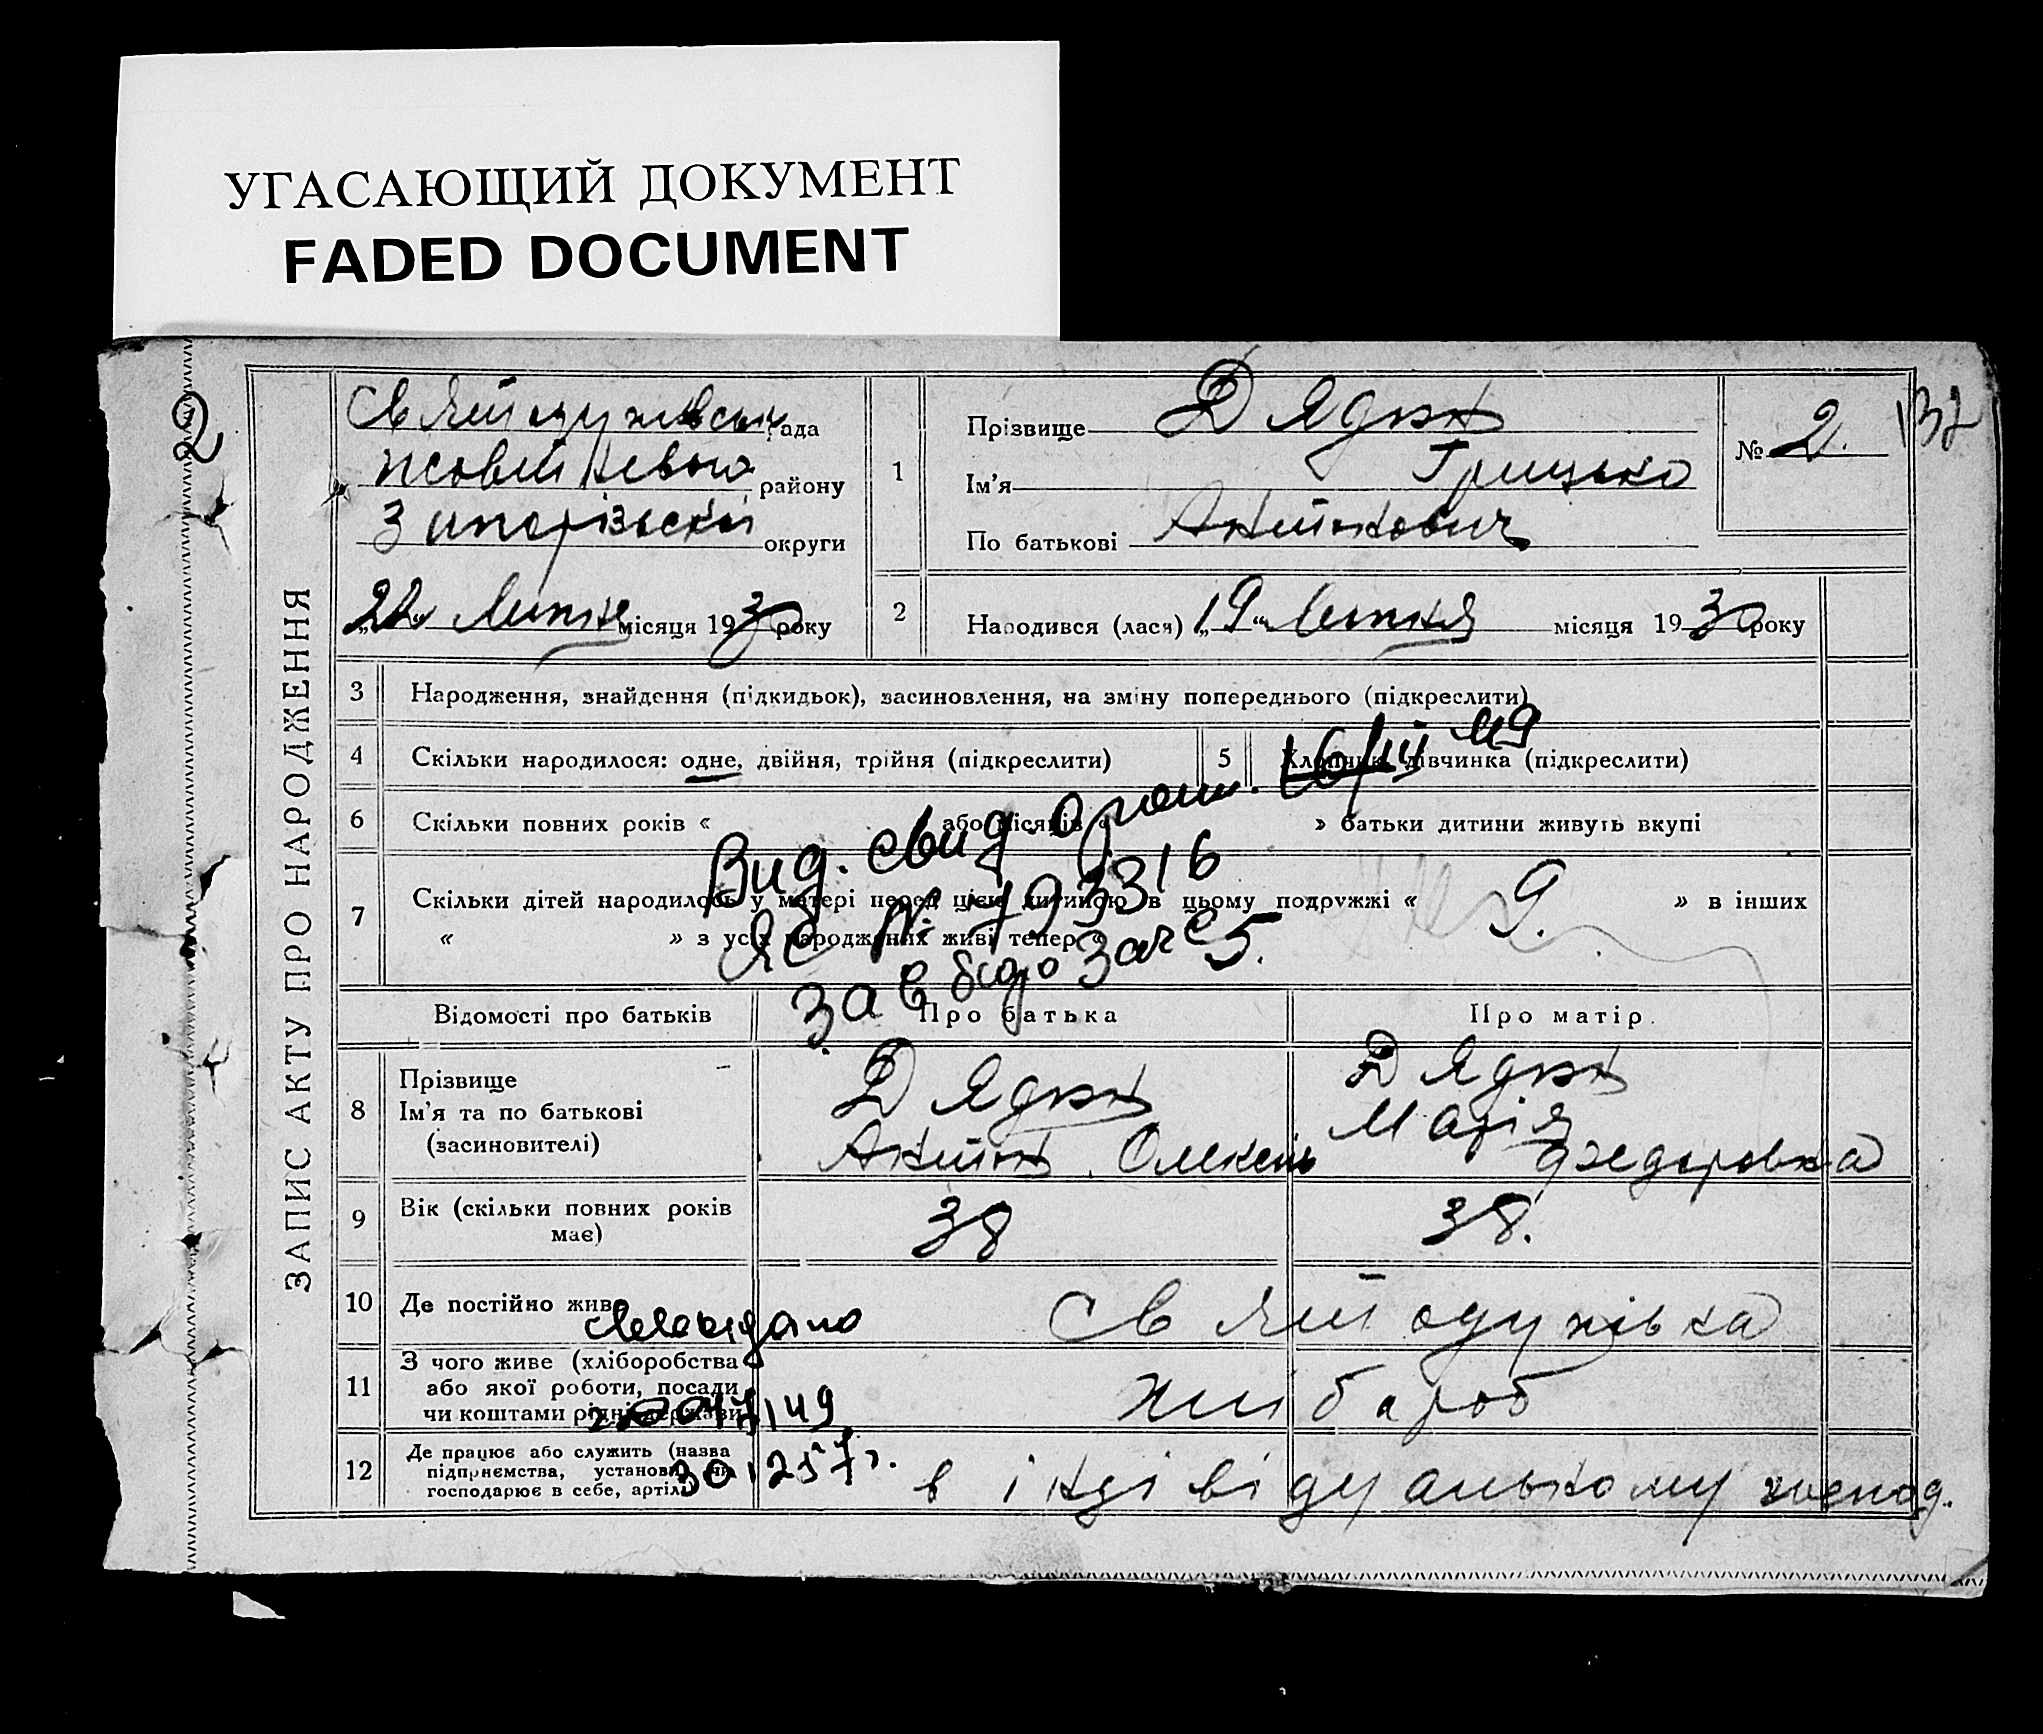 УГАСАЮЩИЙ ДОКУМЕНТ
FADED DOCUMENT
2
132
ЗАПИС АКТУ ПРО НАРОДЖЕННЯ
рада
району
округи
22 Липня місяця 1930 року
1
Прізвище Дядюн
Ім'я Грицько
По батькові
№ 2.
2
Народився (лася) „19" Липня місяця 1930 року
3 Народження, знайдення (підкидьок), засиновлення, на зміну попереднього (підкреслити)
4 Скільки народилося: одне, двійня, трійня (підкреслити)
5 Хлопчик, дівчинка (підкреслити)
6 Скільки повних років « або місяців « » батьки дитини живуть вкупі
7 Скільки дітей народилось у матері перед цією дитиною в цьому подружжі « 9. » в інших
« » з усіх народжених живі тепер «
Вид. свид. о рож.
ЯБ № 793316
Відомості про батьків
Про батька
Про матір.
8 Прізвище
Ім'я та по батькові
(засновителі)
Дядюн
Дядюн
Марія
9 Вік (скільки повних років має)
38
38.
10 Де постійно живе
Святодухівка
11 З чого живе (хліборобства
або якої роботи, посади
чи коштами рідні держави
хлібароб
12 Де працює або служить (назва
підприємства, установи чи
господарює в себе, артілі
в індівідуалькому господ.